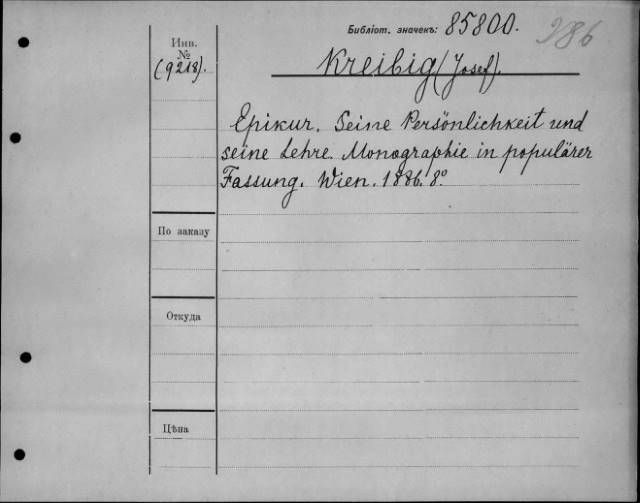 Библіот. значекъ: 85800.
286
Инв.
№
(9218).
Kreibig (Josef).
Epikur. Seine Persönlichkeit und
seine Lehre. Monographie in populärer
Fassung. Wien. 1886. 8°.
По заказу
Откуда
Цѣна